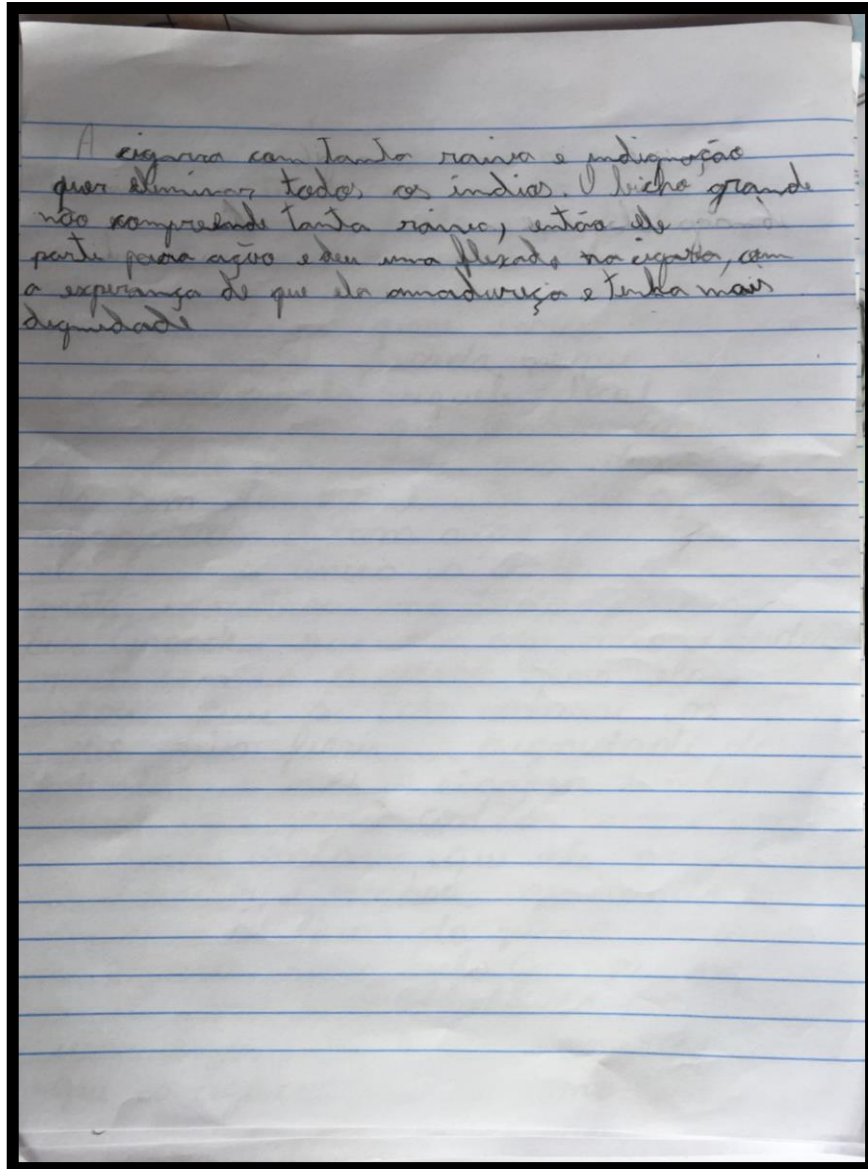 A cigarra com tanta raiva e indignação
quer eliminar todos os índios. O bicho grande
não compreende tanta raiva, então ele
parte para ação e deu uma flexada na cigarra, com
a esperança de que ela amadureça e tenha mais
dignidade